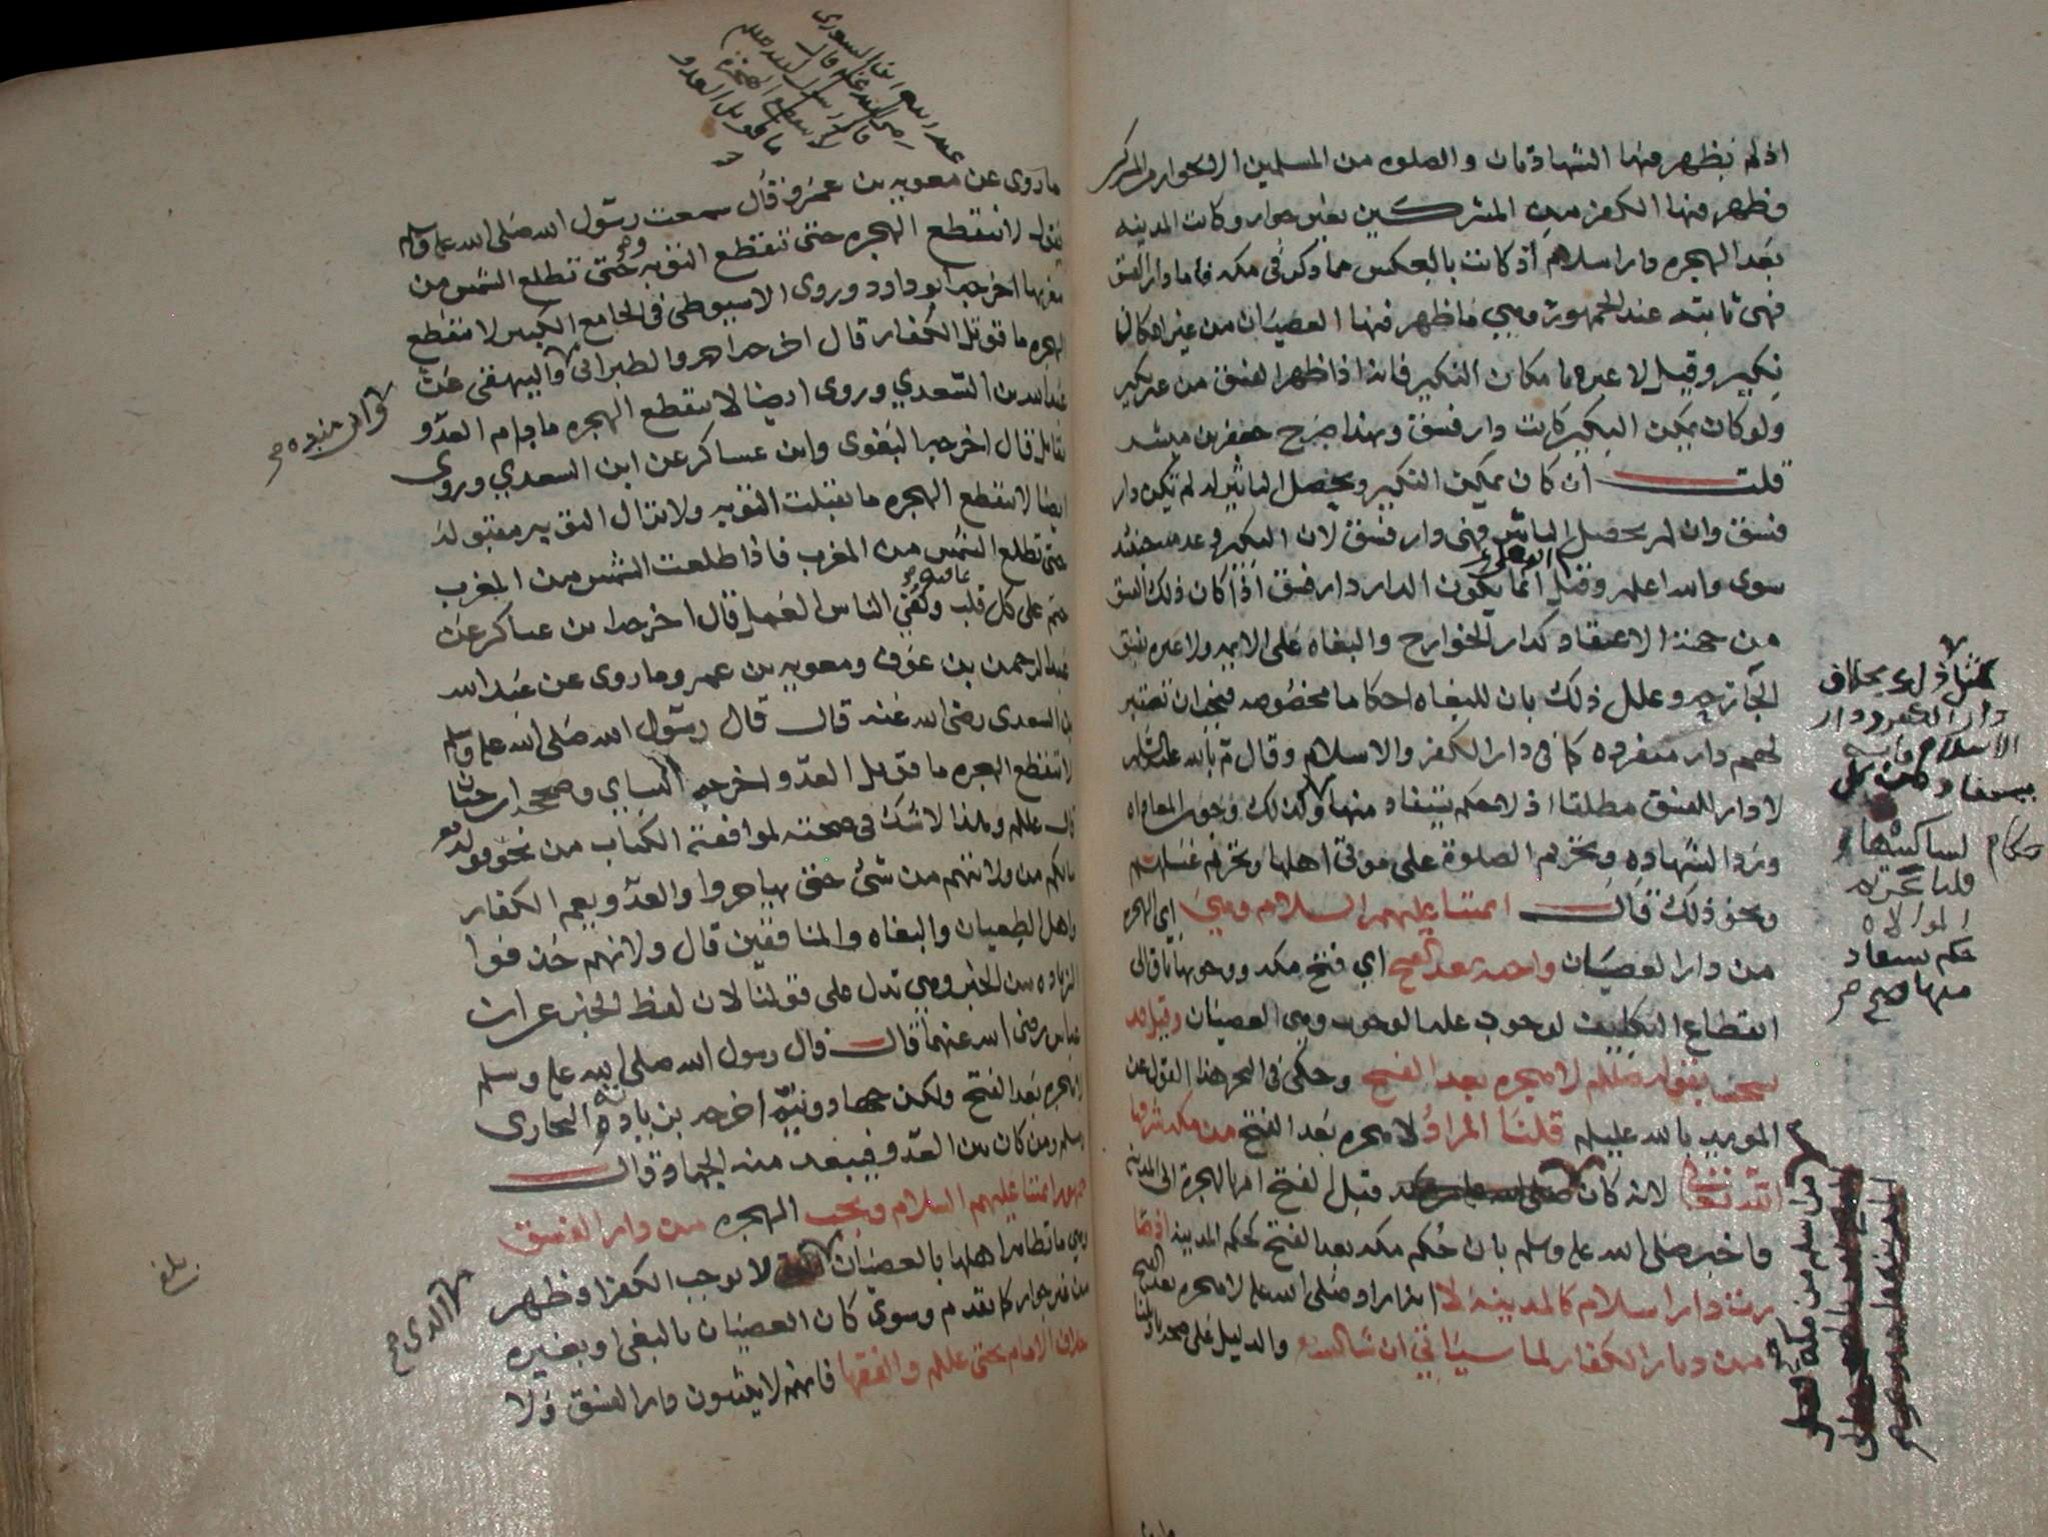 اذ لم يظهر فيها الشهادتان والصلوه من المسلمين الا بجوار من المشركين
وظهر فيها الكفر من المشركين بغير جوار وكانت المدينه
بعد الهجره دار اسلام اذ كانت بالعكس مما ذكر في مكه فاما دار الفسق
فهي ثابته عند الجمهور وهي ما ظهر فيها العصيان من غير امكان
نكير وقيل لا عبره بامكان النكير فانه اذا ظهر الفسق من غير نكير
ولو كان يمكن النكير كانت دار فسق وبهذا صرح جعفر بن مبشر
قلت ان كان يمكن النكير ويحصل التاثير له لم تكن دار
فسق وان لم يحصل التاثير فهي دار فسق لان النكير وعدمه حينئذ
سوى والله اعلم وقيل انما يكون الدار دار فسق اذا كان ذلك الفسق
من جهة الاعتقاد كدار الخوارج والبغاه على الامام ولا عبره بفسق
الجارحه وعلل ذلك بان للبغاه احكاما مخصوصه فيجب ان تعتبر
لهم دار منفرده كما في دار الكفر والاسلام وقال م بالله عليلم
لا دار للفسق مطلقا اذ لا حكم يستفاد منها وكذلك وجوب المعاداه
ورد الشهاده وتحريم الصلوة على موتى اهلها وتحريم غسلهم
ونحو ذلك قال ائمتنا عليهم السلام وهي اي الهجره
من دار العصيان واجبه بعد الفتح اي فتح مكه ووجوبها باق الى
انقطاع التكليف لوجوب علة الوجوب وهي العصيان وقيل قد
نسخت بقوله صللم لا هجره بعد الفتح وحكى في البحر هذا القول عن
المويد بالله عليلم قلنا المراد لا هجره بعد الفتح من مكه شرفها
الله تعالى لانه كان قبل الفتح امر بالهجرة الى المدينه
فاخبر صلى الله عليه وسلم بان حكم مكه بعد الفتح كحكم المدينه اذ قد
صارت دار اسلام كالمدينه لا انه اراد صلى الله عليه لا هجره بعد الفتح
من ديار الكفار لما سياتي ان شا الله والدليل على صحة تاويلنا
دار الكفر ودار
الاسلام فانه
يستفاد
احكام لساكنيها
فاما تحريم
الموالاه
حكم يستفاد
منها صح
من اسلم من مكة
ما روى عن معويه بن عمرو قال سمعت رسول الله صلى الله عليه وسلم
يقول لا تنقطع الهجره حتى تنقطع التوبه وحتى تطلع الشمس من
مغربها اخرجه ابو داود وروى الاسيوطي في الجامع الكبير لا تنقطع
الهجره ما قوتل الكفار قال اخرجه احمد والطبراني والبيهقي عن
عبدالله بن السعدي وروى ايضا لا تنقطع الهجره ما دام العدو
يقاتل قال اخرجه البغوى وابن عساكر عن ابن السعدي وروى
ايضا لا تنقطع الهجره ما تقبلت التوبه ولا تزال التوبه مقبوله
حتى تطلع الشمس من المغرب فاذا طلعت الشمس من المغرب
ختم على كل قلب بما فيه وكفي الناس العمل قال اخرجه ابن عساكر عن
عبدالرحمن بن عوف ومعويه بن عمرو وما روى عن عبدالله
بن السعدى رضي الله عنه قال قال رسول الله صلى الله عليه وسلم
لا تنقطع الهجره ما قوتل العدو اخرجه النساي وصححه ابن حبان
قال عليلم وهذا لا شك في صحته لموافقته الكتاب من نحو قوله تع
ما لكم من ولايتهم من شئ حتى يهاجروا والعدو يعم الكفار
واهل الطغيان والبغاه والمنافقين قال ولانهم حذفوا
الزياده من الخبر وهي تدل على قولنا لان لفظ الخبر عن ابن
عباس رضى الله عنهما قال قال رسول الله صلى الله عليه وسلم
لا هجره بعد الفتح ولكن جهاد ونيه اخرجه بن يادة البخارى
ومسلم ومن كان من العدو فيبعد منه الجهاد قال
جمهور ائمتنا عليهم السلام وتجب الهجره من دار الفسق
وهي ما تظاهر اهلها بالعصيان لا يوجب الكفر اذ ظهر
من غير جوار كما تقدم وسوى كان العصيان بالبغي او بغيره
خلاف الامام يحيى عليلم والفقها فانهم لا يثبتون دار الفسق ولا
رضي الله عنه قال
قال رسول الله صللم
لا تنقطع الهجرة
ما قوتل العدو
وابن منده صح
الذي صح
بلغ